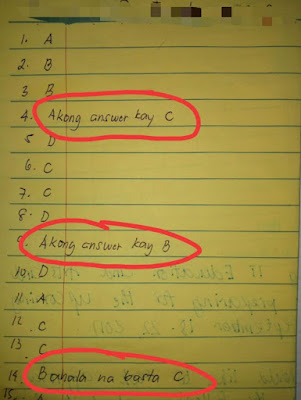 1. A
2. B
3 B
4. Akong answer kay C
5 D
6. C
7. C
8. D
9. Akong answer kay B
10. D
11. A
12. C
13. C
14. Bahala na basta C
15.